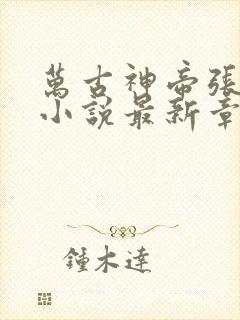 萬古神帝張
小說最新章
鍾木達